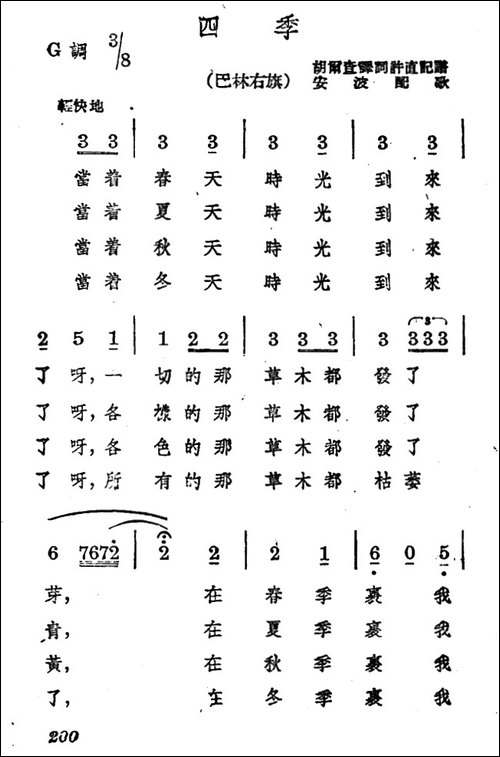 四季
G調 3/8
胡爾查譯詞 許直記譜
（巴林右旗） 安波配歌
輕快地
3 3 | 3 3 | 3 3 | 3 3
當着 春天 時光 到來
當着 夏天 時光 到來
當着 秋天 時光 到來
當着 冬天 時光 到來
2 5 1 | 1 2 2 | 3 3 3 | 3 333 |
了呀，一 切的那 草木都 發了
了呀，各 樣的那 草木都 發了
了呀，各 色的那 草木都 發了
了呀，所 有的那 草木都 枯萎
6 7672 | 2 2 | 2 1 | 6 0 5 |
芽， 在 春季 裏 我
青， 在 夏季 裏 我
黃， 在 秋季 裏 我
了， 在 冬季 裏 我
200